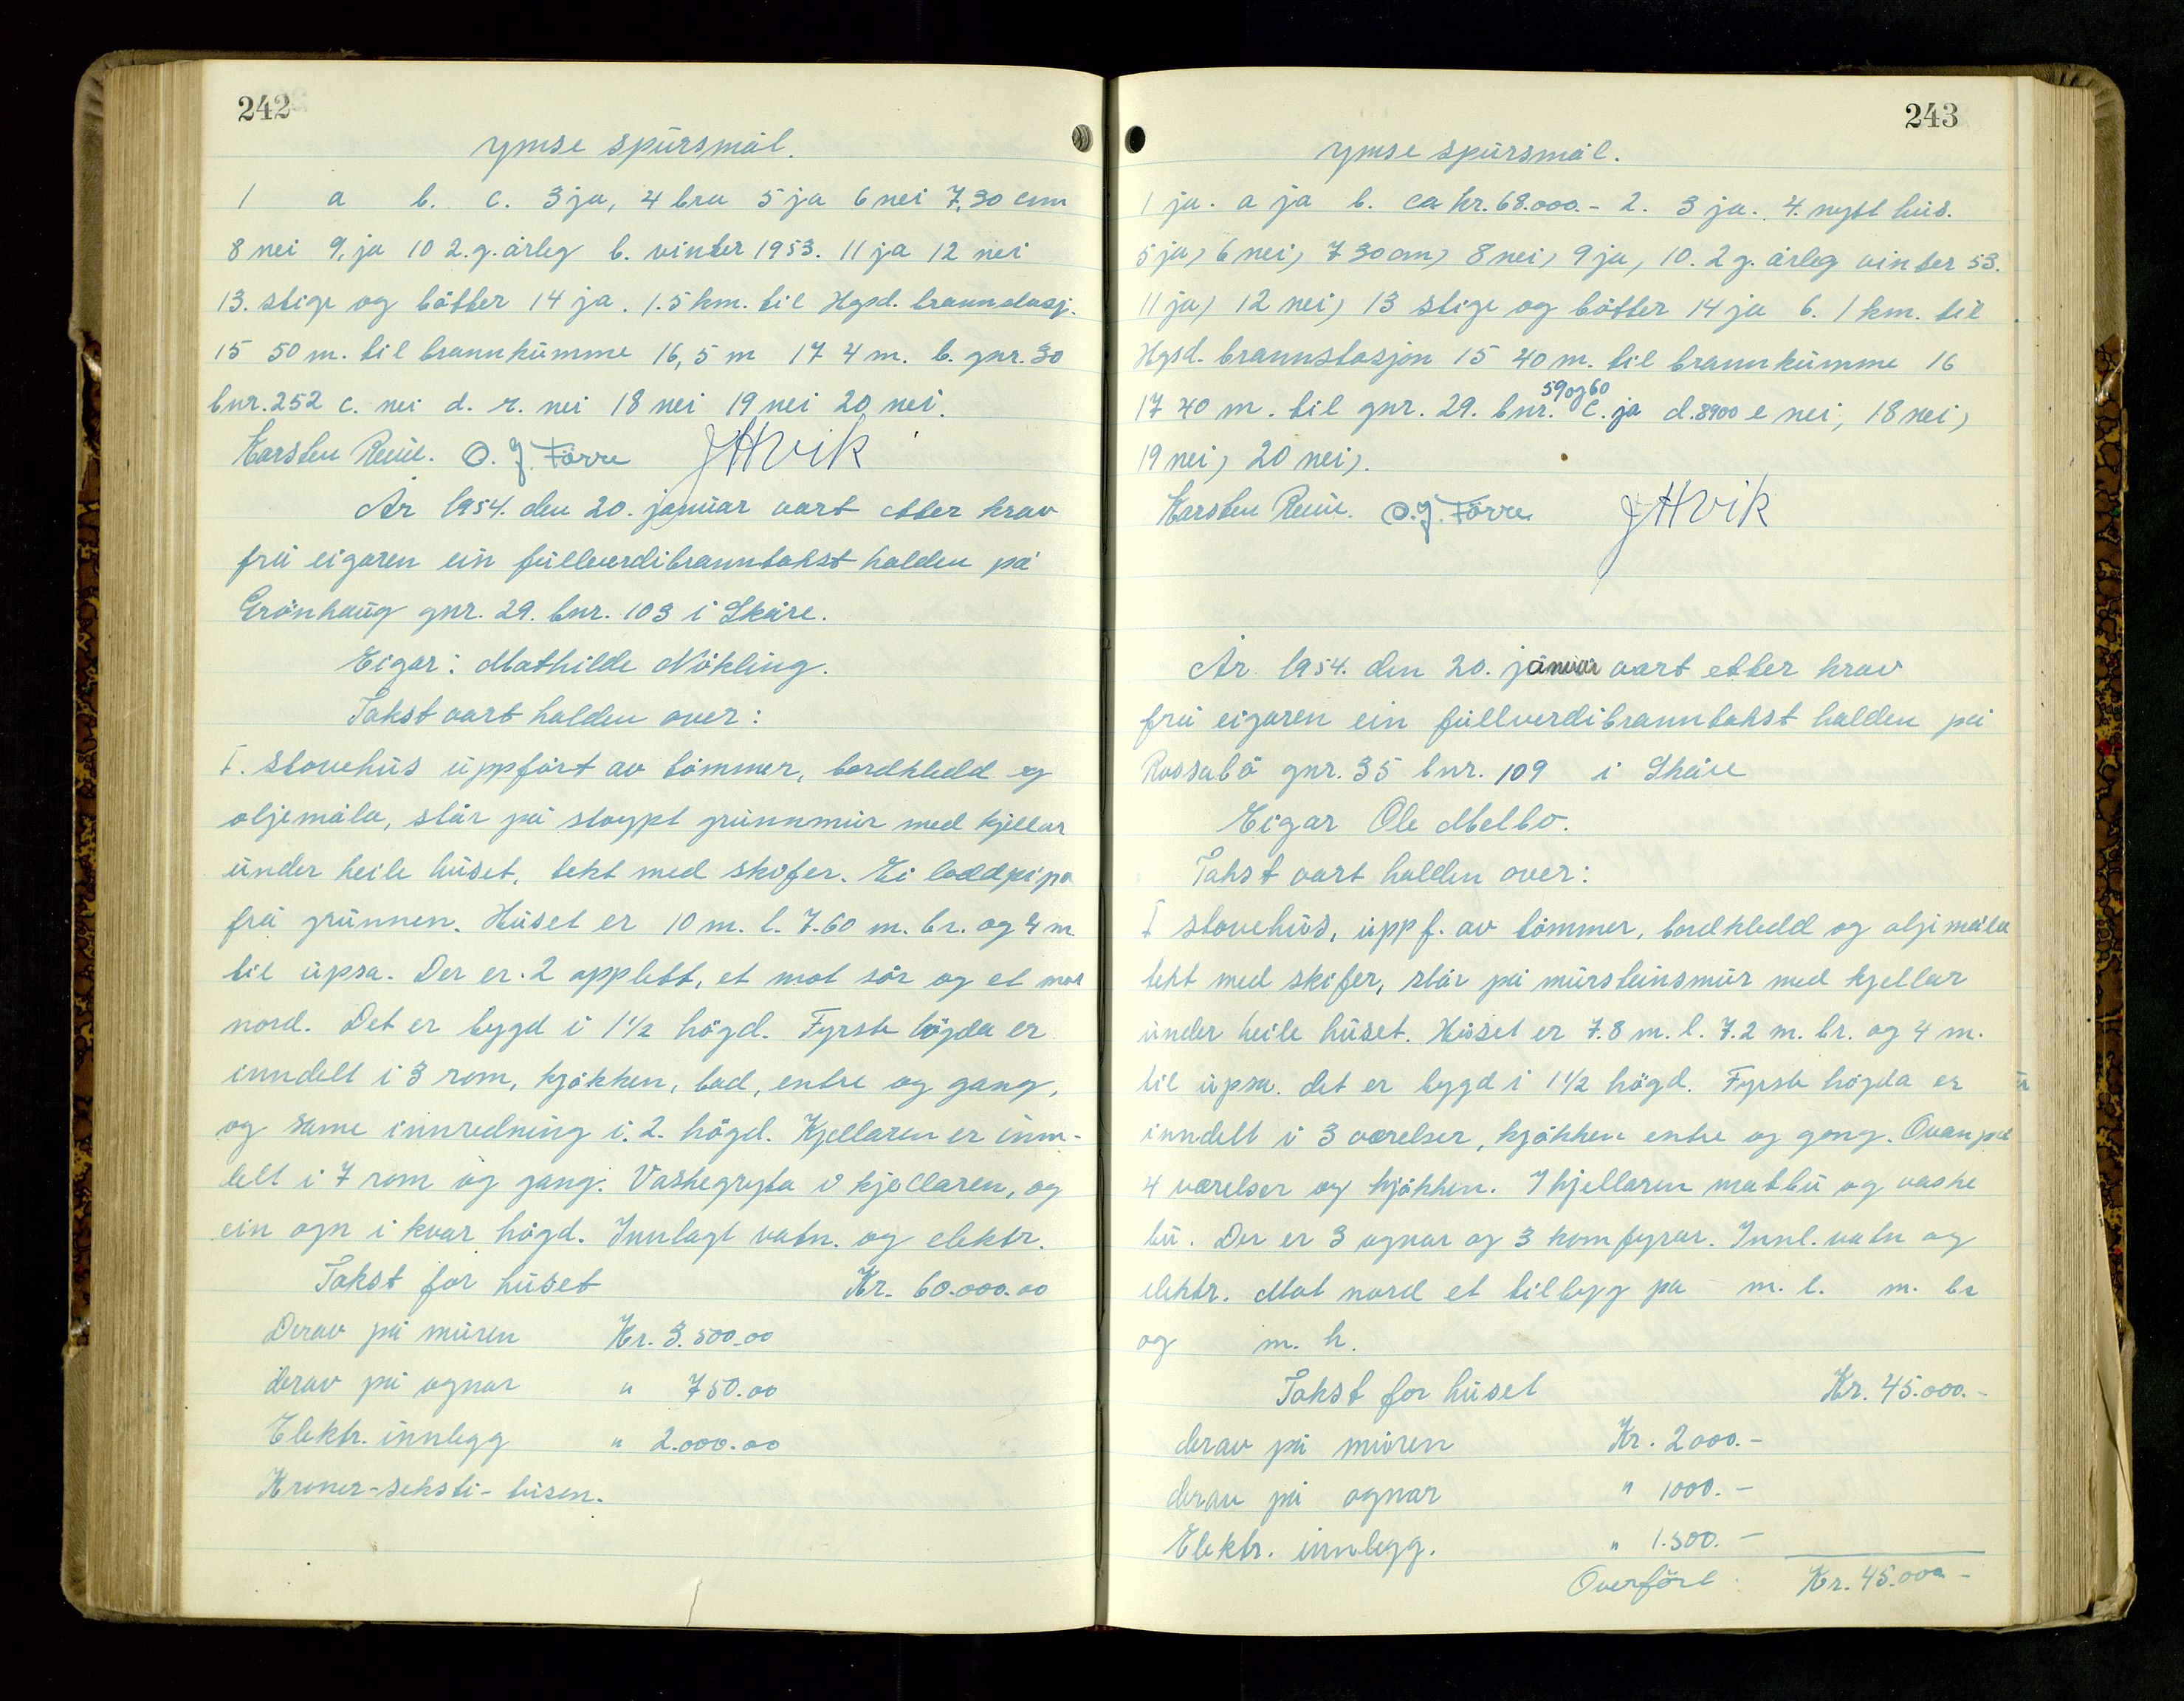 242
ymse spursmål.
1 a b. c. 3 ja, 4 bra 5 ja 6 nei 7,30 cm
8 nei 9, ja 10 2.g. årleg b. vinter 1953. 11 ja 12 nei
13. stige og bötter 14 ja. 1.5 km. til Hgsd. brannstasj.
15 50 m. til brannkumme 16, 5 m 17 4 m. b. gnr. 30
bnr. 252 c. nei d. e. nei 18 nei 19 nei 20 nei.
Karsten O. J. Förre JHVik
År 1954. den 20. januar vart etter krav
frå eigaren ein fullverdibranntakst halden på
Grönhaug gnr. 29. bnr. 103 i Skåre.
Eigar: Mathilde Nökling.
Takst vart halden over:
I. Stovehus uppfört av tömmer, bordkledd og
oljemåla, står på stöypt grunnmur med kjellar
under heile huset, tekt med skifer. Ei loddpipa
frå grunnen. Huset er 10 m. l. 7.60 m. br. og 4 m.
til upsa. Der er 2 opplett, et mot sör og et mot
nord. Det er bygd i 1 1/2 högd. Fyrste högda er
inndelt i 3 rom, kjökken, bad, entre og gang,
og same innredning i 2. högd. Kjellaren er inn-
delt i 7 rom og gang. Vaskegryta i kjellaren, og
ein ogn i kvar högd. Innlagt vatn. og elektr.
Takst for huset Kr. 60.000.00
Derav på muren Kr. 3.500.00
derav på ognar " 750.00
Elektr. innlegg " 2.000.00
Kroner-seksti-tusen.
243
ymse spursmål.
1 ja. a ja b. ca kr. 68.000.- 2. 3 ja. 4. nytt hus.
5 ja, 6 nei, 7 30 cm, 8 nei, 9 ja, 10. 2 g. årleg vinter 53.
11 ja, 12 nei, 13 stige og bötter 14 ja b. 1 km. til
Hgsd. brannstasjon 15 40 m. til brannkumme 16
17 40 m. til gnr. 29. bnr. 59 og 60 c. ja d. 8900 e nei, 18 nei,
19 nei, 20 nei,.
Karsten O. J. Förre JHVik
År 1954. den 20. januar vart etter krav
frå eigaren ein fullverdibranntakst halden på
Rossabö gnr. 35 bnr. 109 i Skåre
Eigar Ole Melbo.
Takst vart halden over:
I stovehus, uppf. av tömmer, bordkledd og oljemåla
tekt med skifer, står på mursteinsmur med kjellar
under heile huset. Huset er 7.8 m. l. 7.2 m. br. og 4 m.
til upsa. det er bygd i 1 1/2 högd. Fyrste högda er
inndelt i 3 værelser, kjökken entre og gang. Ovanpå
4 værelser og kjökken. I kjellaren matbu og vaske
bu. Der er 3 ognar og 3 komfyrar. Innl. vatn og
elektr. Mot nord et tilbygg på m. l. m. br
og m. h.
Takst for huset Kr. 45.000.-
derav på muren Kr. 2000.-
derav på ognar " 1000.-
Elektr. innlegg. " 1.500.-
Overfört Kr. 45.000-